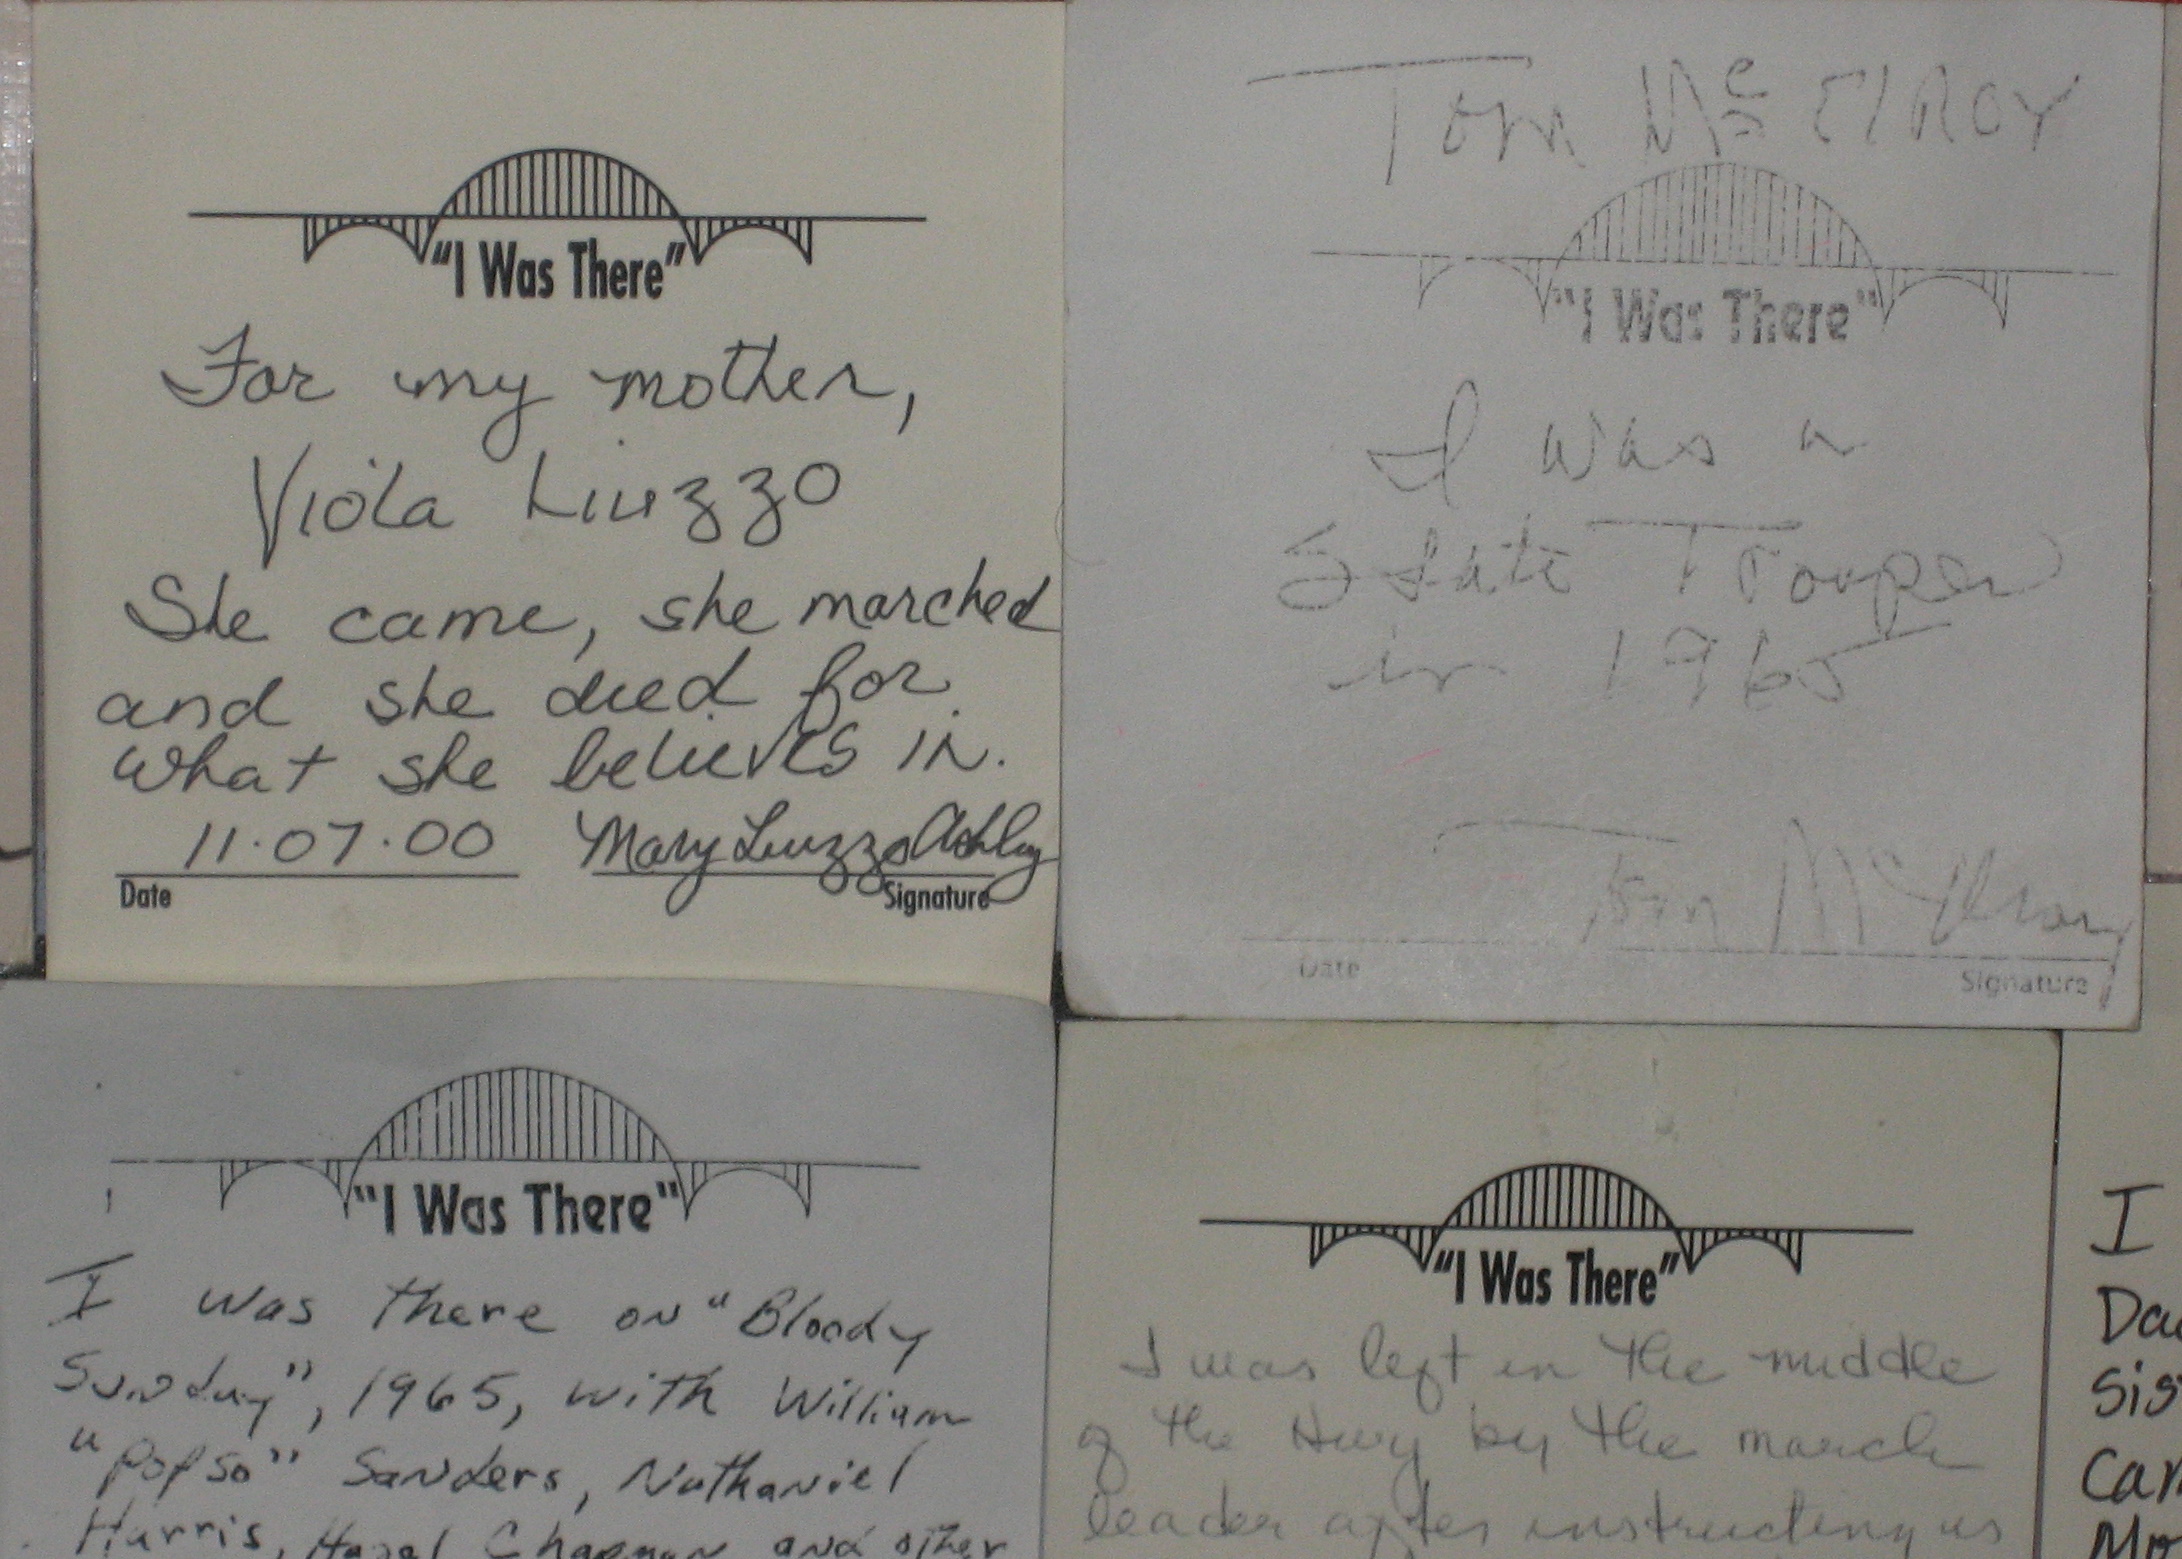 "I Was There"
For my mother,
Viola Liuzzo
She came, she marched
and she died for
what she believes in.
11.07.00 Mary Liuzzo Ashley
Date Signature
Tom Mc ElRoy
"I Was There"
I was a
State Trooper
in 1965
Tom McElroy
Date Signature
"I Was There"
I was there on "Bloody
Sunday", 1965, with William
"Popso" Sanders, Nathaniel
Harris, Hazel Chapman and other
"I Was There"
I was left in the middle
of the Hwy by the march
leader after instructing us
I